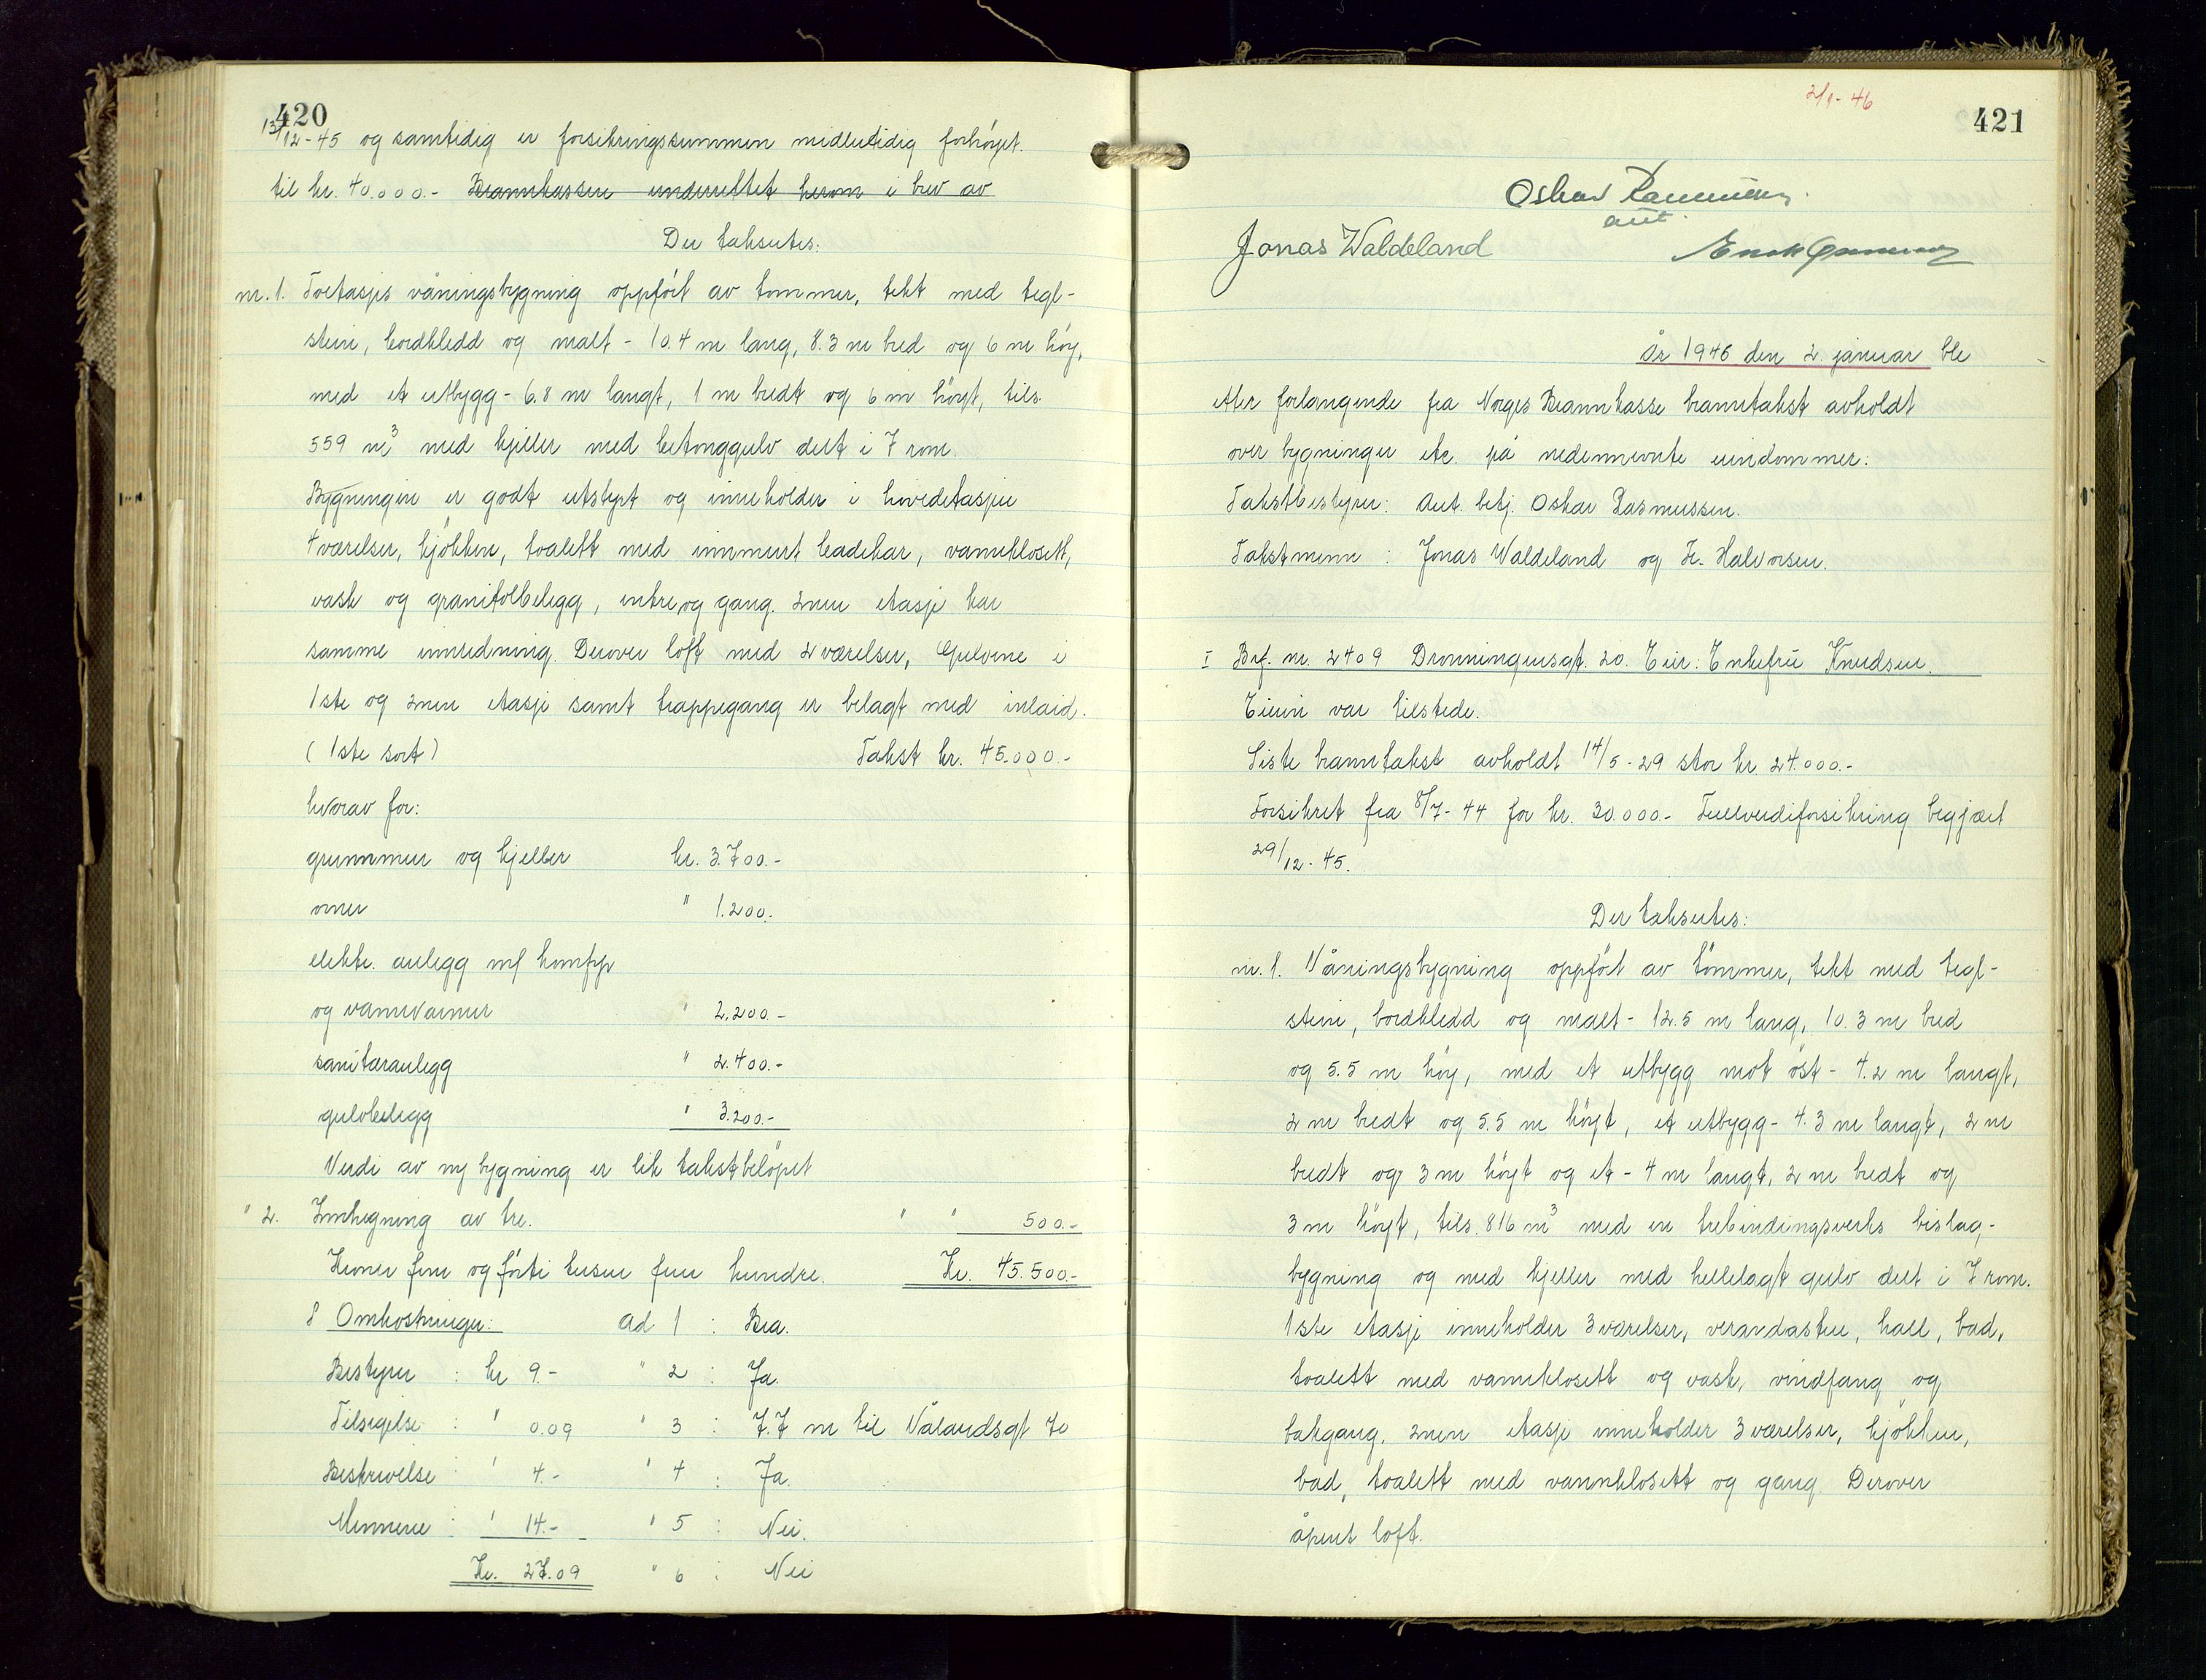 420
13/12-45 og samtidig er forsikringssummen midlertidig forhöyet
til kr. 40.000.- Brannkassen underrettet herom i brev av
Der taksertes:
nr. 1. Toetasjes våningsbygning oppfört av tømmer, tekt med tegl-
stein, bordkledd og malt - 10.4 m lang, 8.3 m bred og 6 m høy,
med et utbygg - 6.8 m langt, 1 m bredt og 6 m höyt, tils.
559 m³ med kjeller med betonggulv delt i 7 rom.
Bygningen er godt utstyrt og inneholder i hovedetasjen
4 værelser, kjökken, toalett med innmurt badekar, vannklosett,
vask og granitolbelegg, entre og gang. 2nen etasje har
samme innredning. Derover loft med 2 værelser, Gulvene i
1ste og 2nen etasje samt trappegang er belagt med inlaid.
(1ste sort) Takst kr. 45.000.-
hvorav for:
grunnmur og kjeller kr. 3.700.-
ovner " 1.200.
elektr. anlegg m/ komfyr
og vannvarmer " 2.200.-
sanitæranlegg " 2.400.-
gulvbelegg " 3.200.-
Verdi av ny bygning er lik takstbelöpet
" 2. Innhegning av tre. " " 500.-
Kroner fem og förti tusen fem hundre. Kr. 45.500.-
§ Omkostninger: ad 1 : Bra.
Bestyrer : kr 9.- " 2 : Ja.
Tilsigelse : " 0.09 " 3 : 7.7 m til Vålandsgt 70
Beskrivelse : " 4.- " 4 : Ja.
Mennene : " 14.- " 5 : Nei.
Kr. 27.09 " 6 : Nei
2/1-46
421
Oskar Rasmussen
aut.
Jonas Waldeland
År 1946 den 2. januar ble
etter forlangende fra Norges Brannkasse branntakst avholdt
over bygninger etc. på nedennevnte eiendommer:
Takstbestyrer: Aut. betj. Oskar Rasmussen.
Takstmenn : Jonas Waldeland og Kr. Halvorsen.
I Brf. nr. 2409 Dronningensgt. 20. Eier: Enkefru Knudsen.
Eieren var tilstede.
Siste branntakst avholdt 14/5-29 stor kr. 24.000.-
Forsikret fra 8/7-44 for kr. 30.000.- Fullverdiforsikring begjært
29/12-45.
Der taksertes:
nr. 1. Våningsbygning oppfört av tömmer, tekt med tegl-
stein, bordkledd og malt - 12.5 m lang, 10.3 m bred
og 5.5 m höy, med et utbygg mot öst - 4.2 m langt,
2 m bredt og 5.5 m höyt, et utbygg - 4.3 m langt, 2 m
bredt og 3 m höyt og et - 4 m langt, 2 m bredt og
3 m höyt, tils. 816 m³ med en trebindingsverks bislag-
bygning og med kjeller med hellelagt gulv delt i 7 rom.
1ste etasje inneholder 3 værelser, verandastue, hall, bad,
toalett med vannklosett og vask, vindfang og
bakgang. 2nen etasje inneholder 3 værelser, kjökken,
bad, toalett med vannklosett og gang. Derover
åpent loft.